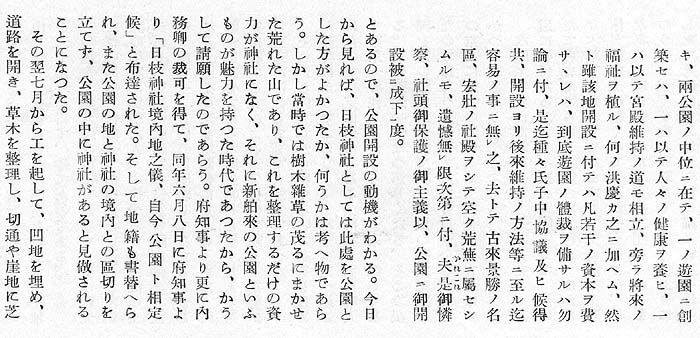 キ、兩公園ノ中位ニ在テ、一ノ遊園ニ創
築セハ、一ハ以テ人々ノ健康ヲ養ヒ、一
ハ以テ宮殿維持ノ道モ相立、旁ラ將來ノ
福祉ヲ植ル、何ノ洪慶カ之ニ加ヘム、然
ト雖該地開設ニ付テハ凡若干ノ資本ヲ費
サヽレハ、到底遊園ノ體裁ヲ備サルハ勿
論ニ付、是迄種々氏子中協議及ヒ候得
共、開設ヨリ後來維持ノ方法等ニ至ル迄
容易ノ事ニ無レ之、去トテ古來景勝ノ名
區、宏壯ノ社殿ヲシテ空ク荒蕪ニ屬セシ
ムルモ、遺憾無レ限次第ニ付、夫是御憐
察、社頭御保護ノ御主義以、公園ニ御開
設被二成下一度。
とあるので、公園開設の動機がわかる。今日
から見れば、日枝神社としては此處を公園と
した方がよかつたか、何うかは考へ物であら
う。しかし當時では樹木雜草の茂るにまかせ
た荒れた山であり、これを整理するだけの資
力が神社になく、それに新舶來の公園といふ
ものが魅力を持つた時代であつたから、かう
して請願したのであらう。府知事より更に內
務卿の裁可を得て、同年六月八日に府知事よ
り「日枝神社境內地之儀、自今公園ト相定
候」と布達された。そして地籍も書替へら
れ、また公園の地と神社の境內との區切りを
立てず、公園の中に神社があると見做される
ことになつた。
その翌七月から工を起して、凹地を埋め、
道路を開き、草木を整理し、切通や崖地に芝